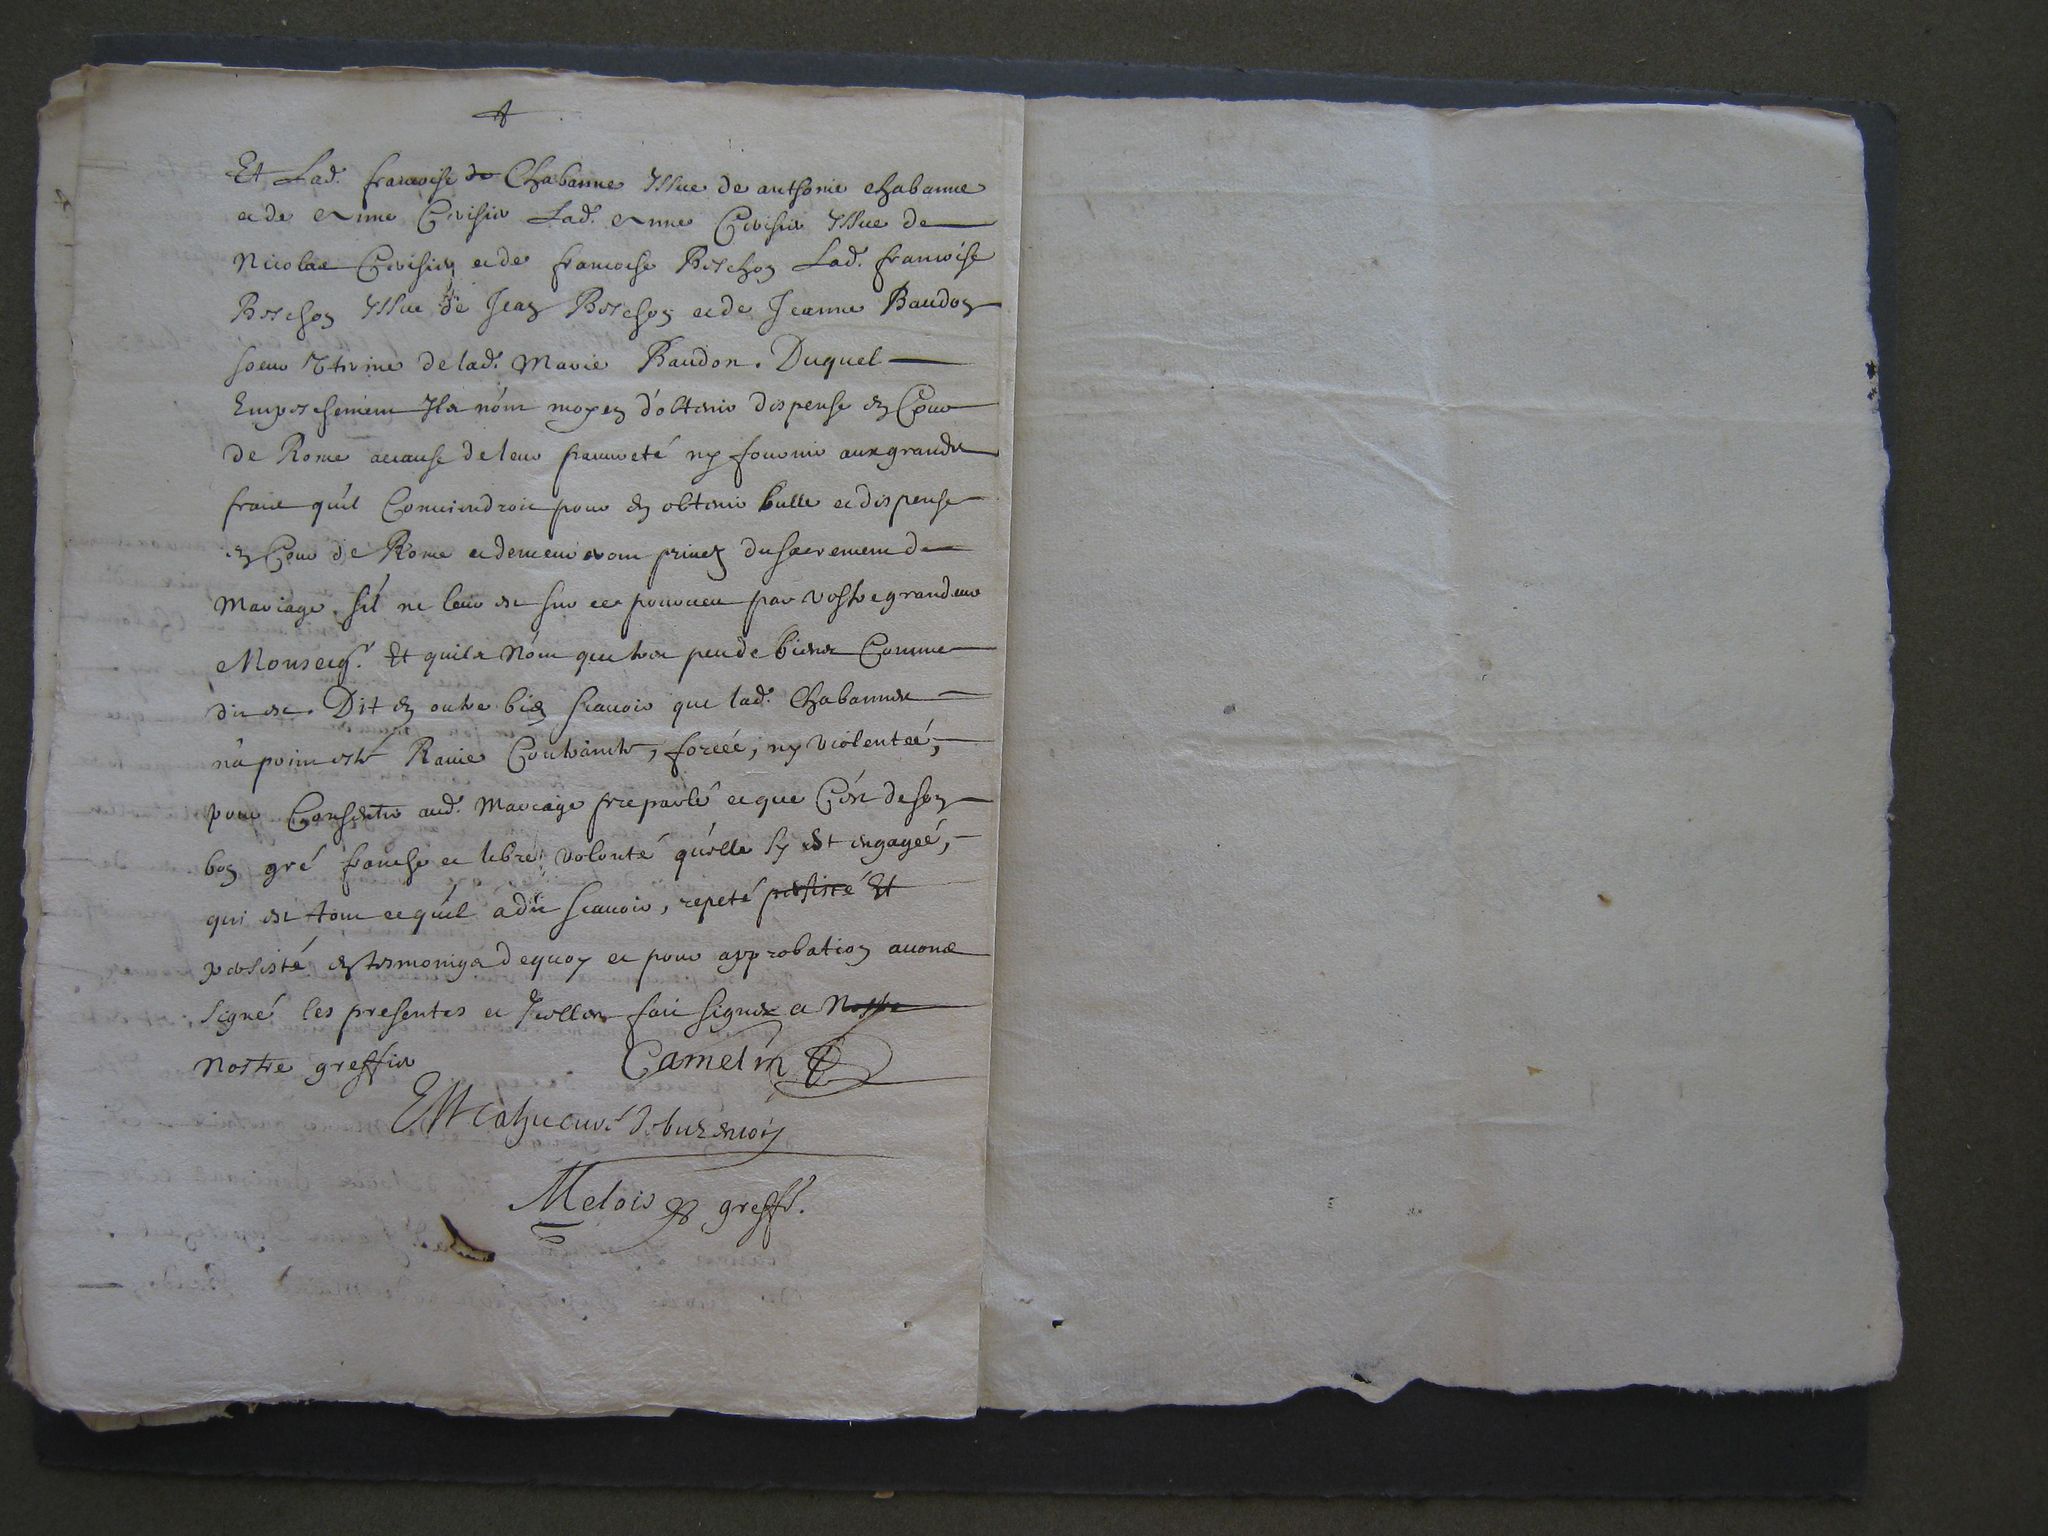 Et Lad. francoise de Chabanne Yssue de anthonie chabanne
et de Anne Crisin Lad. Anne Crisin Yssue de
Nicolas et de francoise Berchon Lad. francoise
Berchon Yssue de Jean Berchon et de Jeanne Baudon
soeur Uterine de lad. Marie Baudon. Duquel
Empeschement Ils nónt moyen d'obtenir dispense en Cour
de Rome acause de leur pauvreté ny fournir aux grandes
frais quil Conviendroit pour en obtenir bulle et dispense
en Cour de Rome et demeureront privez du sacrement de
Mariage. sil ne leur est sur ce pourveu par vostre grandeur
Monseigr. Et quils Nónt que tres peu de biens Comme
dit est. Dit en outre bien scavoir que lad. Chabannes
ná point esté Ravie Contrainte, forcéé, ny violentéé,
pour Consentir aud. Mariage preparlé et que Cést de son
bon gré franche et libre volonté quélle sy est engagéé,
qui est tout ce quíl a dit scavoir, repeté persisté Et
persisté en tesmoniga dequoy et pour approbation avons
signé les presentes et Icelles fait signer a Nostre
Nostre greffier Camelin
curé de buzancois
Melois greffr.